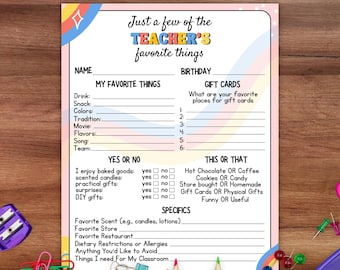 Just a few of the
TEACHER'S
favorite things
NAME
BIRTHDAY
MY FAVORITE THINGS
Drink:
Snack:
Colors:
Tradition:
Movie:
Flavors:
Song:
Team:
GIFT CARDS
What are your favorite
places for gift cards
1
2
3
4
5
6
YES OR NO
I enjoy baked goods: yes no
scented candles: yes no
practical gifts: yes no
surprises: yes no
DIY gifts: yes no
THIS OR THAT
Hot Chocolate OR Coffee
Cookies OR Candy
Store bought OR Homemade
Gift Cards OR Physical Gifts
Funny OR Useful
SPECIFICS
Favorite Scent (e.g., candles, lotions)
Favorite Store
Favorite Restaurant
Dietary Restrictions or Allergies
Anything You'd Like to Avoid
Things I need For My Classroom